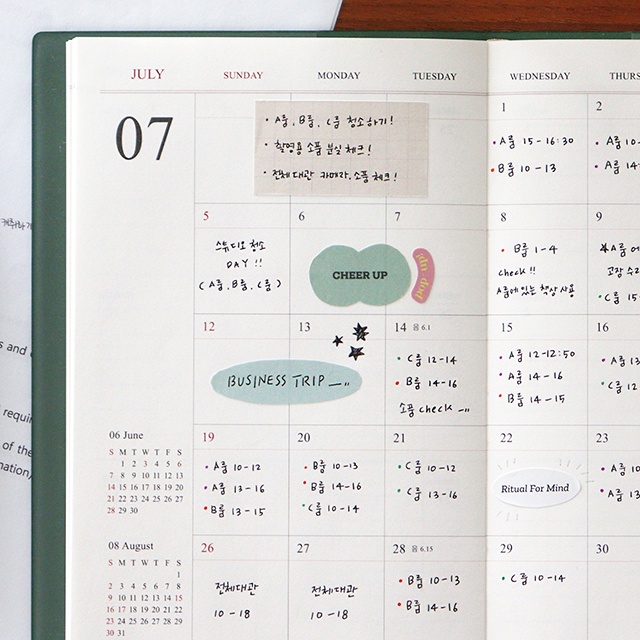 JULY
SUNDAY
MONDAY
TUESDAY
WEDNESDAY
THURS
07
1
2
· A룸, B룸, C룸 청소하기!
· 촬영용 소품 분실 체크!
· 전체대관 카메라, 소품 체크!
· A룸 15-16:30
· B룸 10-13
· A룸 10-
· A룸 4-
5
6
7
8
9
스튜디오 청소
DAY !!
( A룸, B룸, C룸 )
CHEER UP
pop-up
· B룸 1-4
check!!
A룸에 있는 책상 사용
★A룸 에
고장 수리
· C룸 15-
12
13
14 음 6.1
15
16
BUSINESS TRIP _..
· C룸 12-14
· B룸 14-16
소품 check _..
· A룸 12-12:50
· A룸 14-16
· B룸 14-15
· A룸 13
· C룸 12
19
20
21
22
23
· A룸 10-12
· A룸 13-16
· B룸 13-15
· B룸 10-13
· B룸 14-16
· C룸 10-14
· C룸 10-12
· C룸 13-16
Ritual For Mind
· A룸 10
· A룸 13
26
27
28 음 6.15
29
30
전체대관
10-18
전체대관
10-18
· B룸 10-13
· B룸 14-16
· C룸 10-14
06 June
S M T W T F S
1 2 3 4 5 6
7 8 9 10 11 12 13
14 15 16 17 18 19 20
21 22 23 24 25 26 27
28 29 30
08 August
S M T W T F S
1
2 3 4 5 6 7 8
9 10 11 12 13 14 15
16 17 18 19 20 21 22
23 24 25 26 27 28 29
30 31
s and
requir
of the
nation)